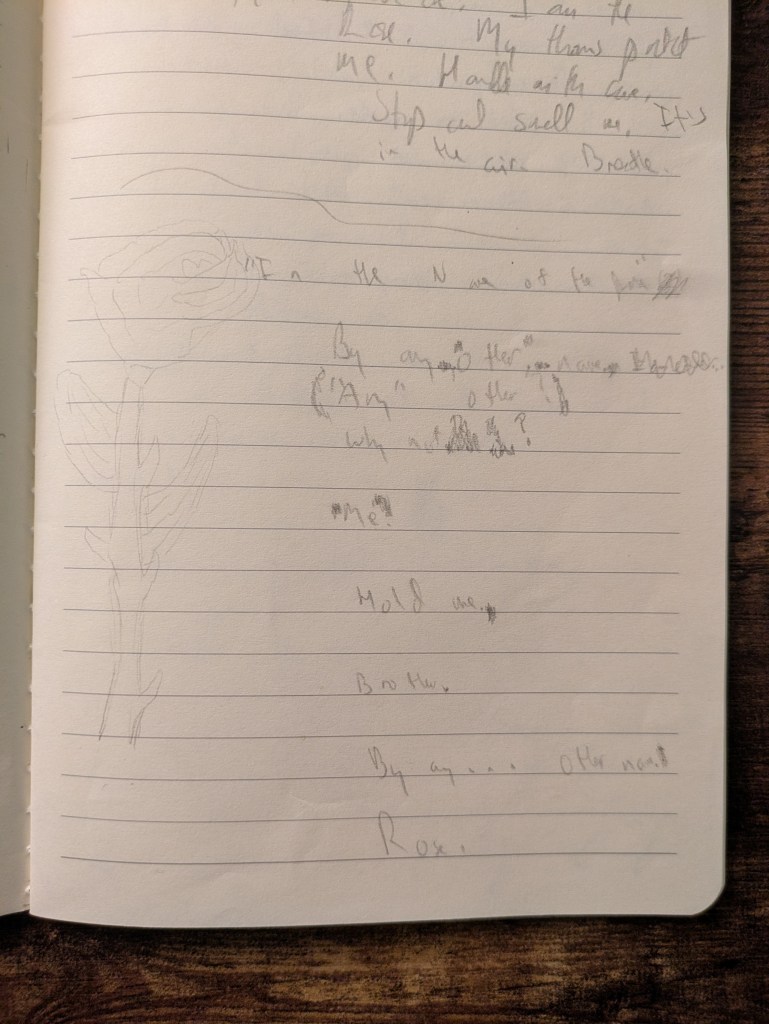 I am the
Rose. My thorns protect
me. Handle with care.
Stop and smell me. It's
in the air. Breathe.
"In the Name of the
By any "other" name.
("Any" other?)
Why not
"Me"?
Hold me.
Brother.
By any... other name.
Rose.